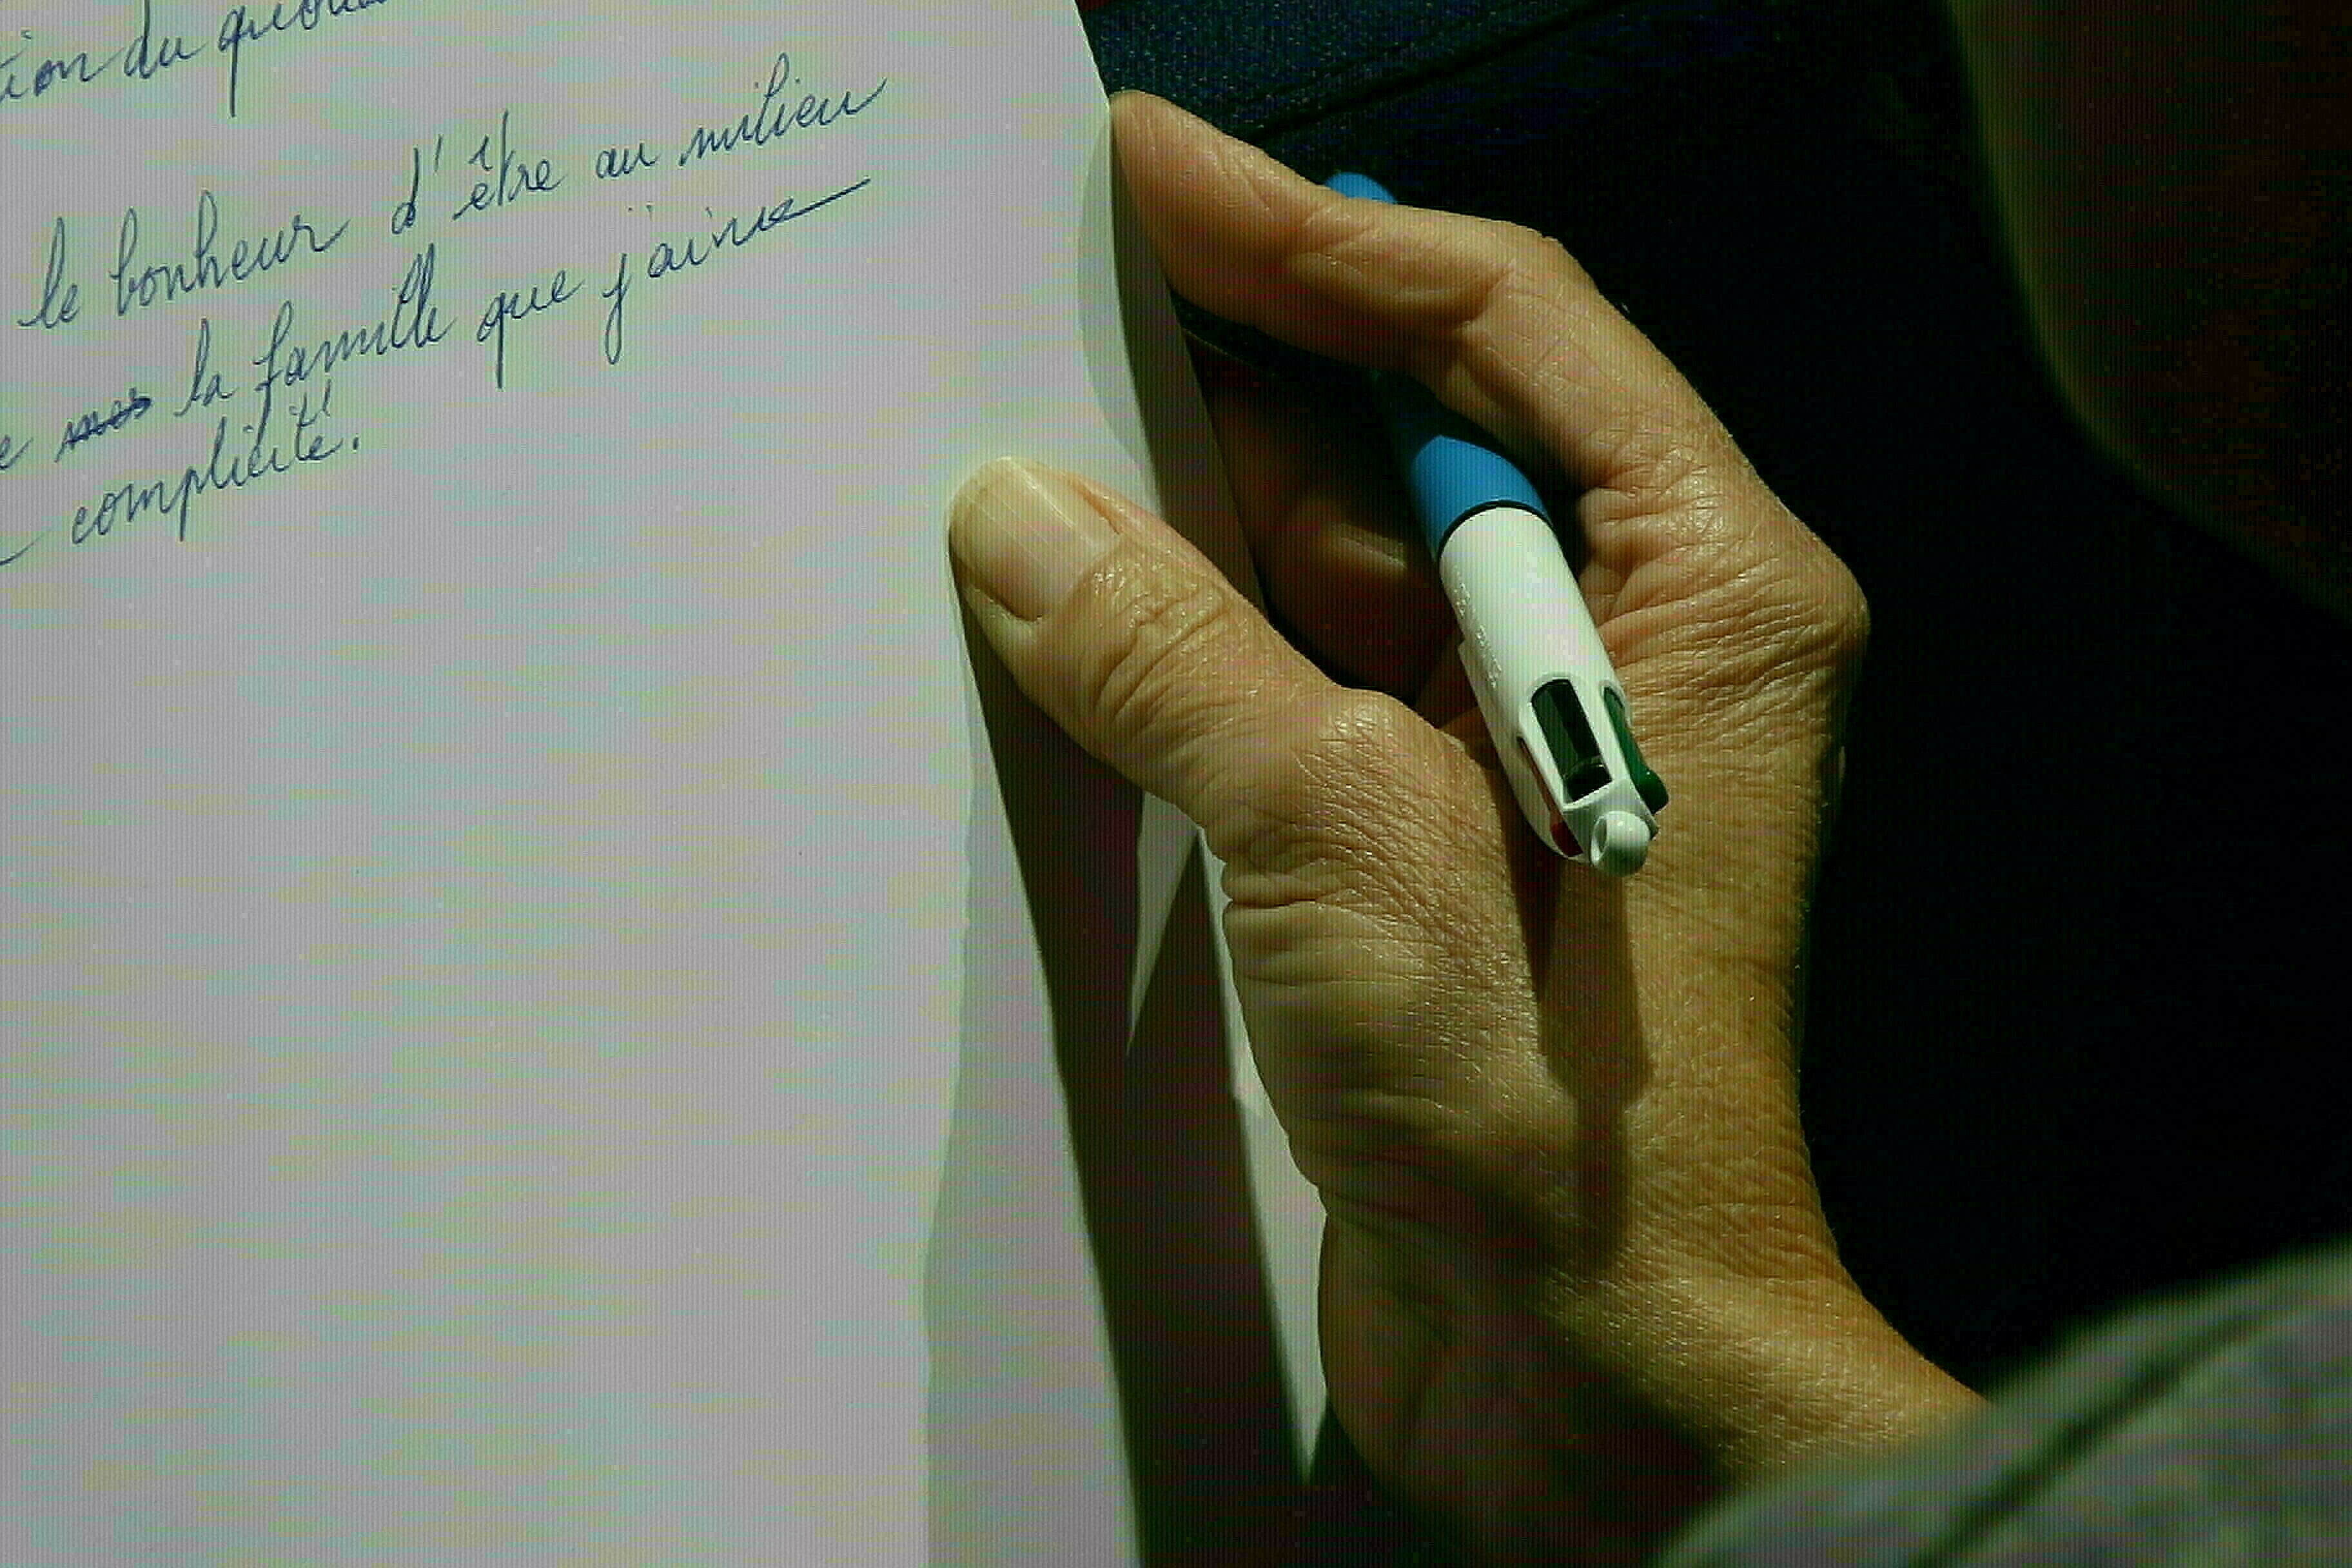 ion du
le bonheur d'être au milieu
e la famille que j'aime
complicité.